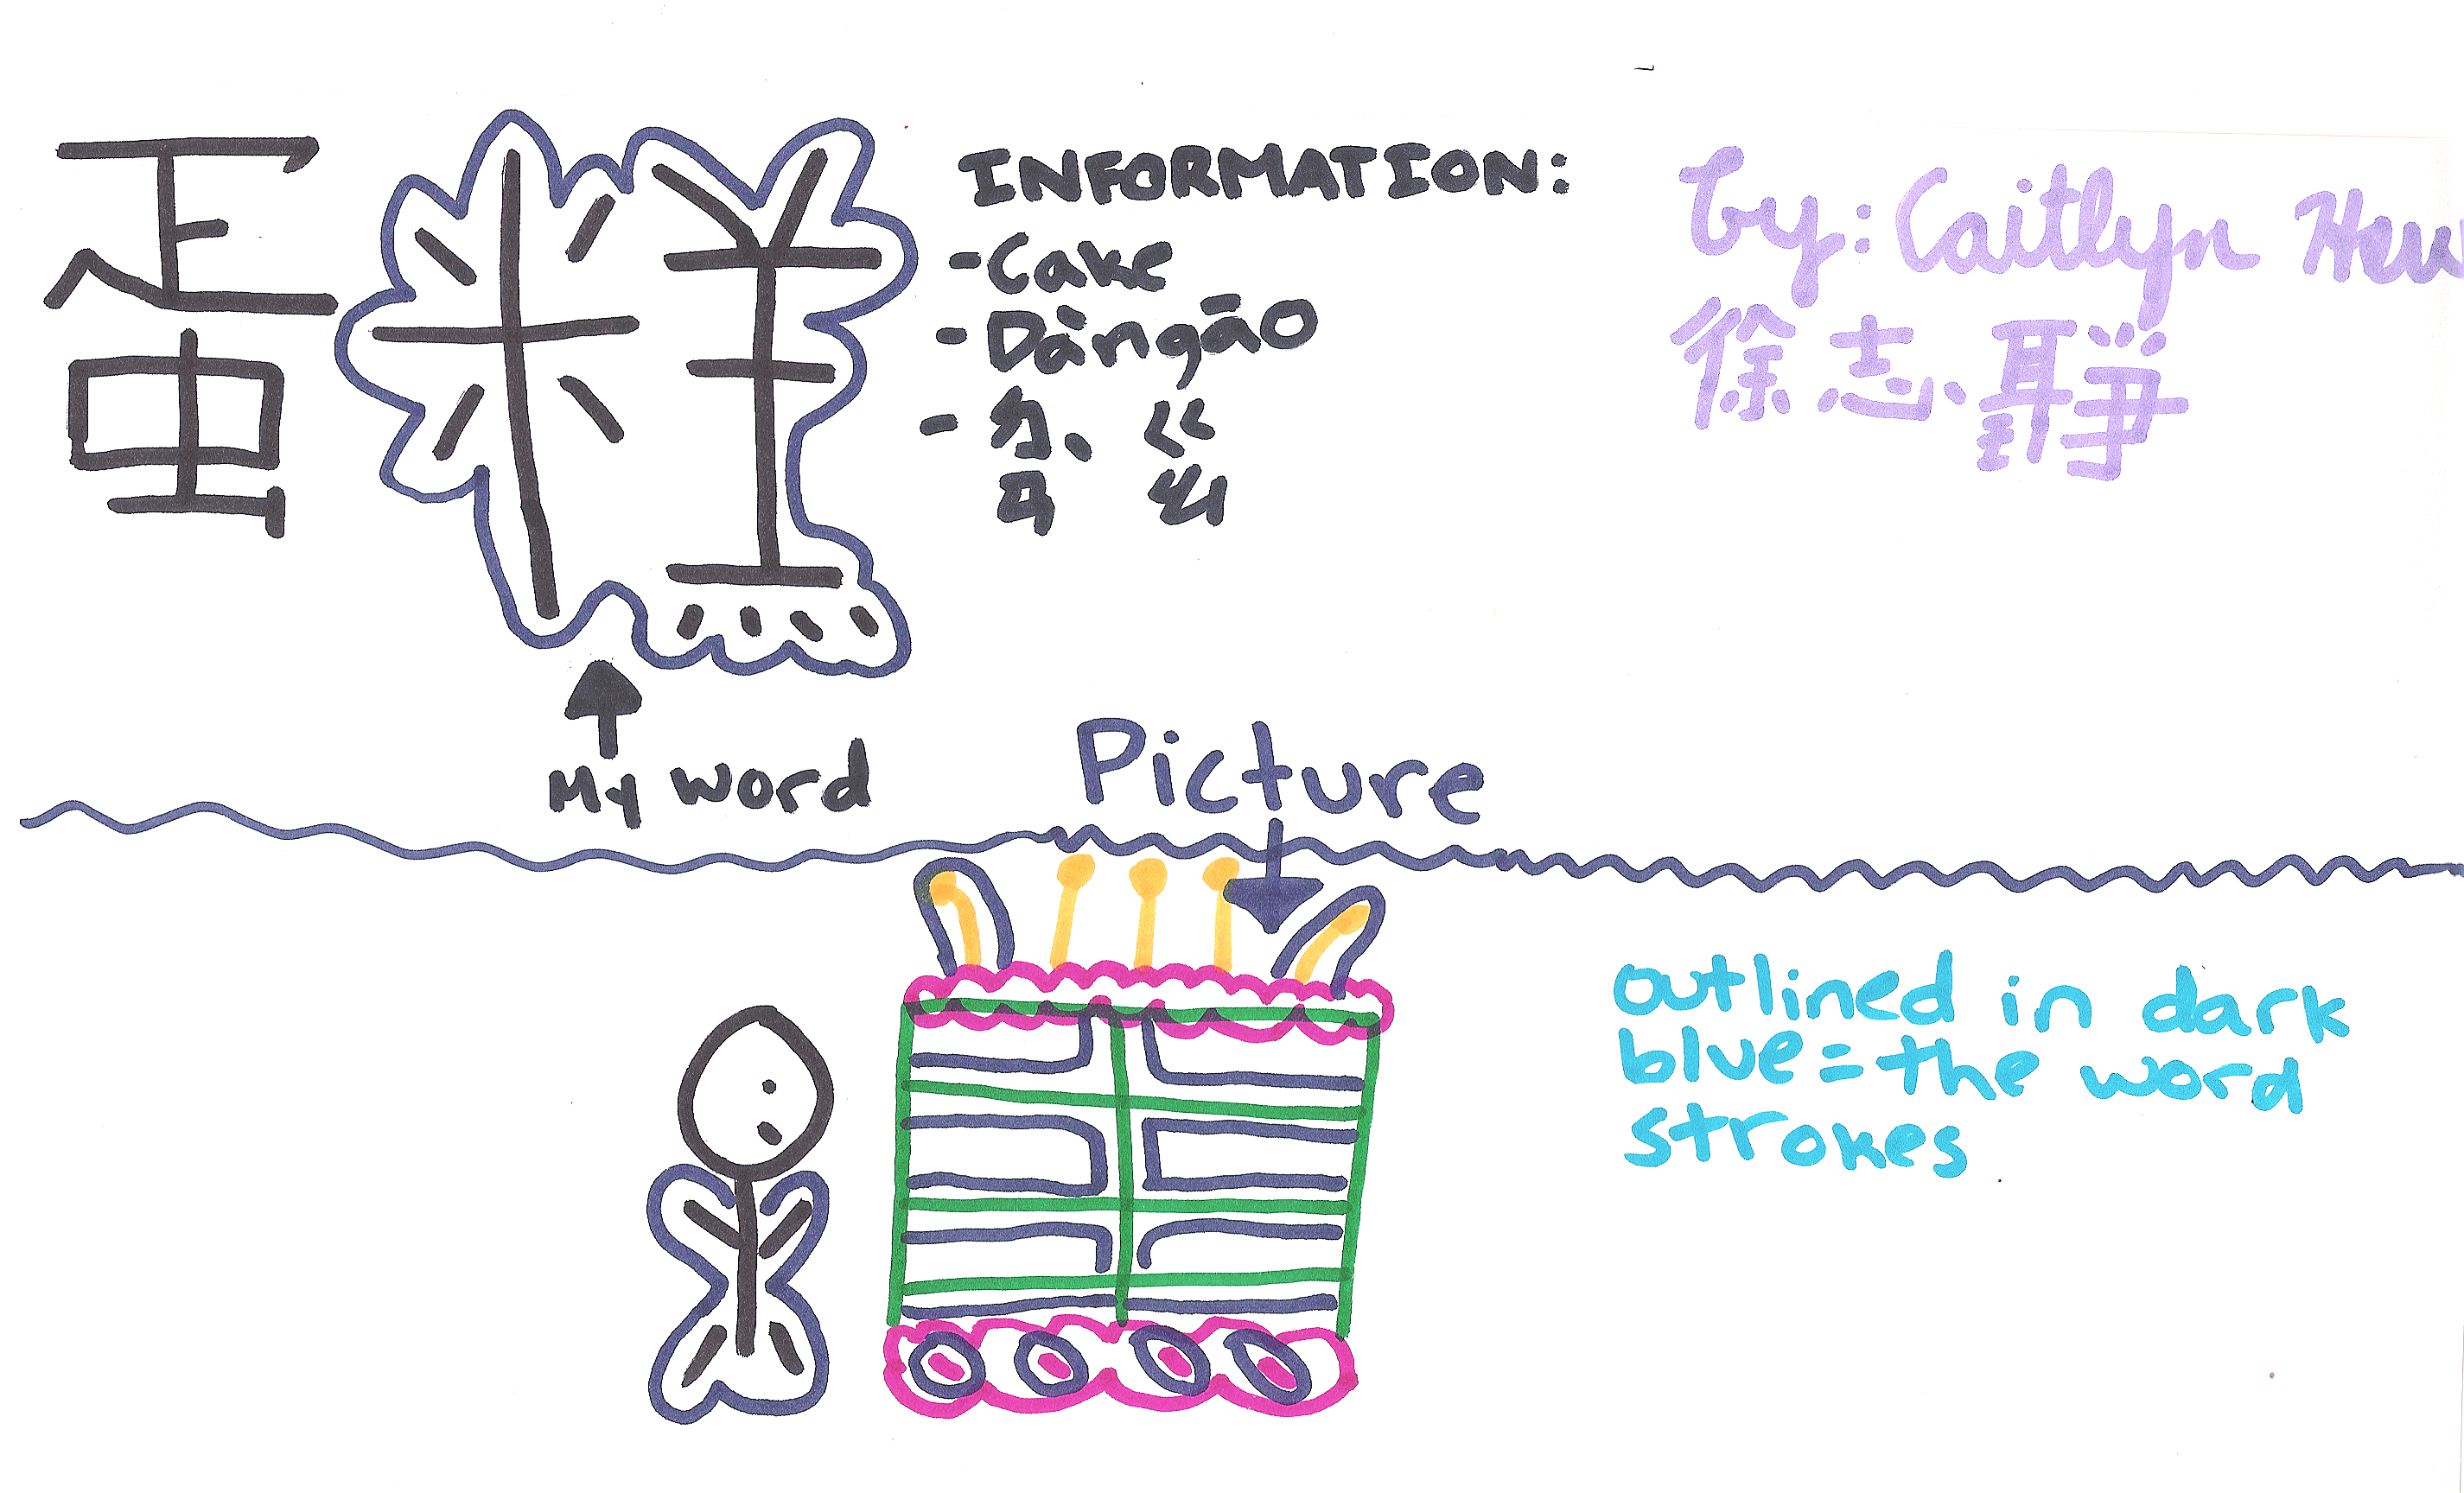 蛋糕
INFORMATION:
-Cake
-Dàngāo
-ㄉㄢˋ ㄍㄠ
by: Caitlyn
徐志
My word
Picture
outlined in dark
blue = the word
strokes